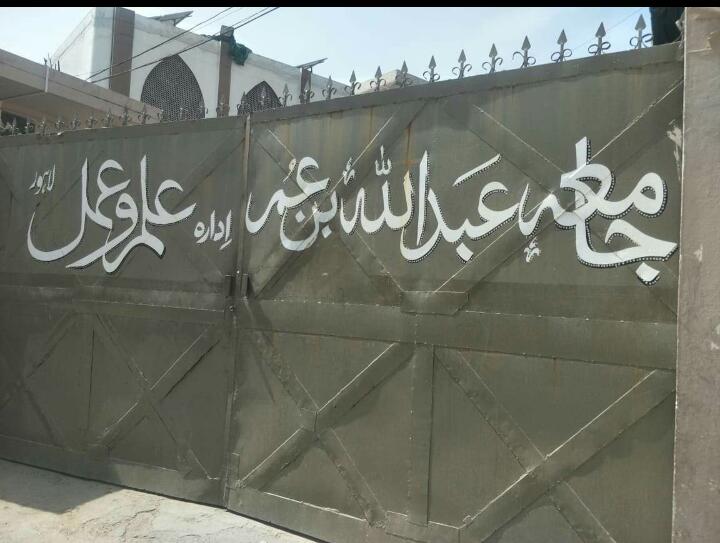 جامعہ عبداللہ بن عمرؓ ادارہ علم و عمل لاہور